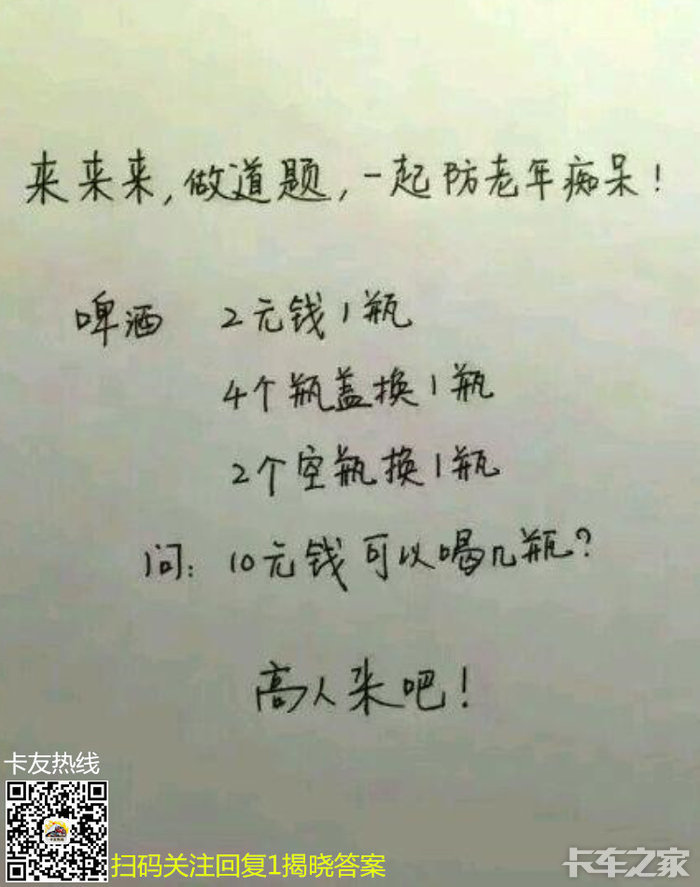 来来来,做道题,一起防老年痴呆!
啤酒 2元钱1瓶
4个瓶盖换1瓶
2个空瓶换1瓶
问:10元钱可以喝几瓶?
高人来吧!
卡友热线
扫码关注回复1揭晓答案
卡车之家